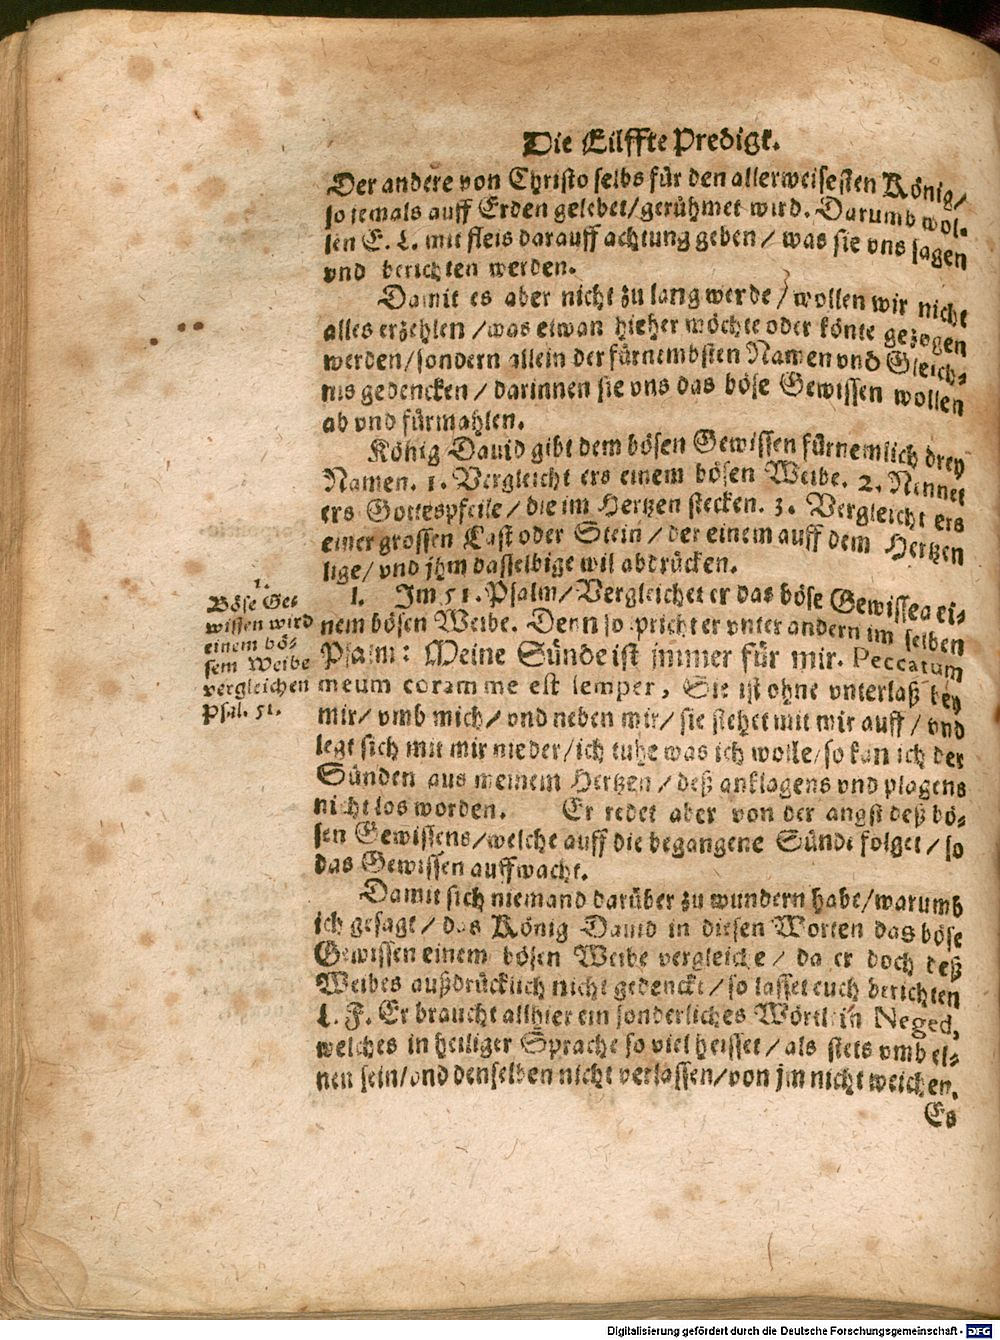 Die Eilffte Predigt.
Der andere von Christo selbs für den allerweisesten König/
so jemals auff Erden gelebet/gerühmet wird. Darumb wol-
len E. L. mit fleis darauff achtung geben / was sie vns sagen
vnd berichten werden.
Damit es aber nicht zu lang werde / wollen wir nicht
alles erzehlen / was etwan hieher möchte oder könte gezogen
werden/sondern allein der fürnembsten Namen vnd Gleich-
nis gedencken / darinnen sie vns das böse Gewissen wollen
ab vnd fürmahlen.
König Dauid gibt dem bösen Gewissen fürnemlich drey
Namen. 1. Vergleicht ers einem bösen Weibe. 2. Nennet
ers Gottespfeile / die im Hertzen stecken. 3. Vergleicht ers
einer grossen Last oder Stein / der einem auff dem Hertzen
lige/ vnd jhm dasselbige wil abdrücken.
1.
Böse Ge-
wissen wird
einem bö-
sem Weibe
vergleichen
Psal. 51.
I. Im 51. Psalm/ Vergleichet er das böse Gewissen ei-
nem bösen Weibe. Denn so spricht er vnter andern im selben
Psalm: Meine Sünde ist jmmer für mir. Peccatum
meum coram me est semper, Sie ist ohne vnterlaß bey
mir/ vmb mich/ vnd neben mir/ sie stehet mit mir auff / vnd
legt sich mit mir nieder/ich tuhe was ich wolle/so kan ich der
Sünden aus meinem Hertzen / deß anklagens vnd plagens
nicht los worden. Er redet aber von der angst deß bö-
sen Gewissens/welche auff die begangene Sünde folget / so
das Gewissen auffwacht.
Damit sich niemand darüber zu wundern habe/warumb
ich gesagt / das König Dauid in diesen Worten das böse
Gewissen einem bösen Weibe vergleiche / da er doch deß
Weibes außdrücklich nicht gedenckt / so lasset euch berichten
L. F. Er braucht allhier ein sonderliches Wörtlein Neged,
welches in heiliger Sprache so viel heisset / als stets vmb ei-
nen sein/vnd denselben nicht verlassen/von jm nicht weichen.
Es
Digitalisierung gefördert durch die Deutsche Forschungsgemeinschaft - DFG